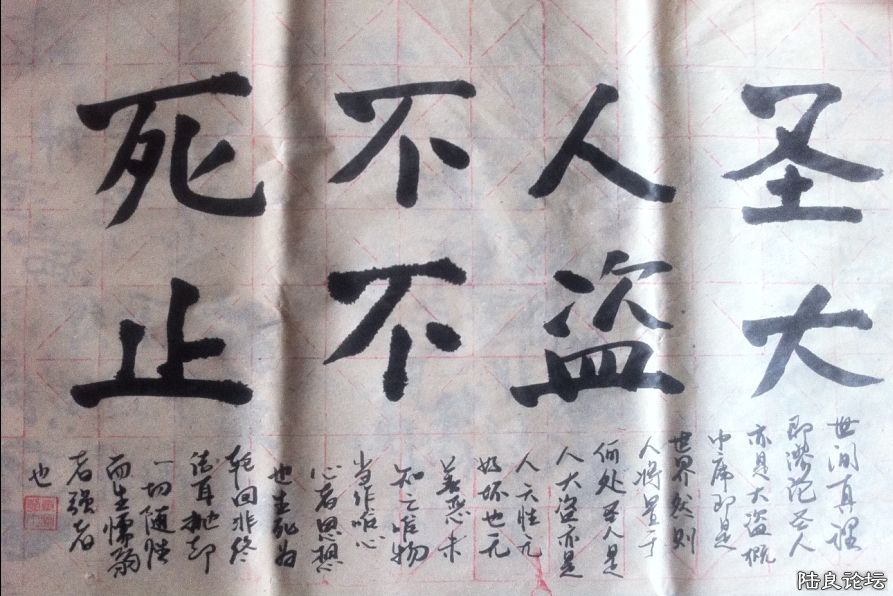 圣人不死
大盗不止
世间真理
即谬论圣人
亦是大盗概
中席即是
世界然则
人将置于
何处圣人是
人大盗亦是
人人性元
好坏也无
善恶未
知之唯物
当作唯心
心者思想
也生死为
轮回非终
结耳抛却
一切随性
而生懦弱
者强者
也
陆良论坛